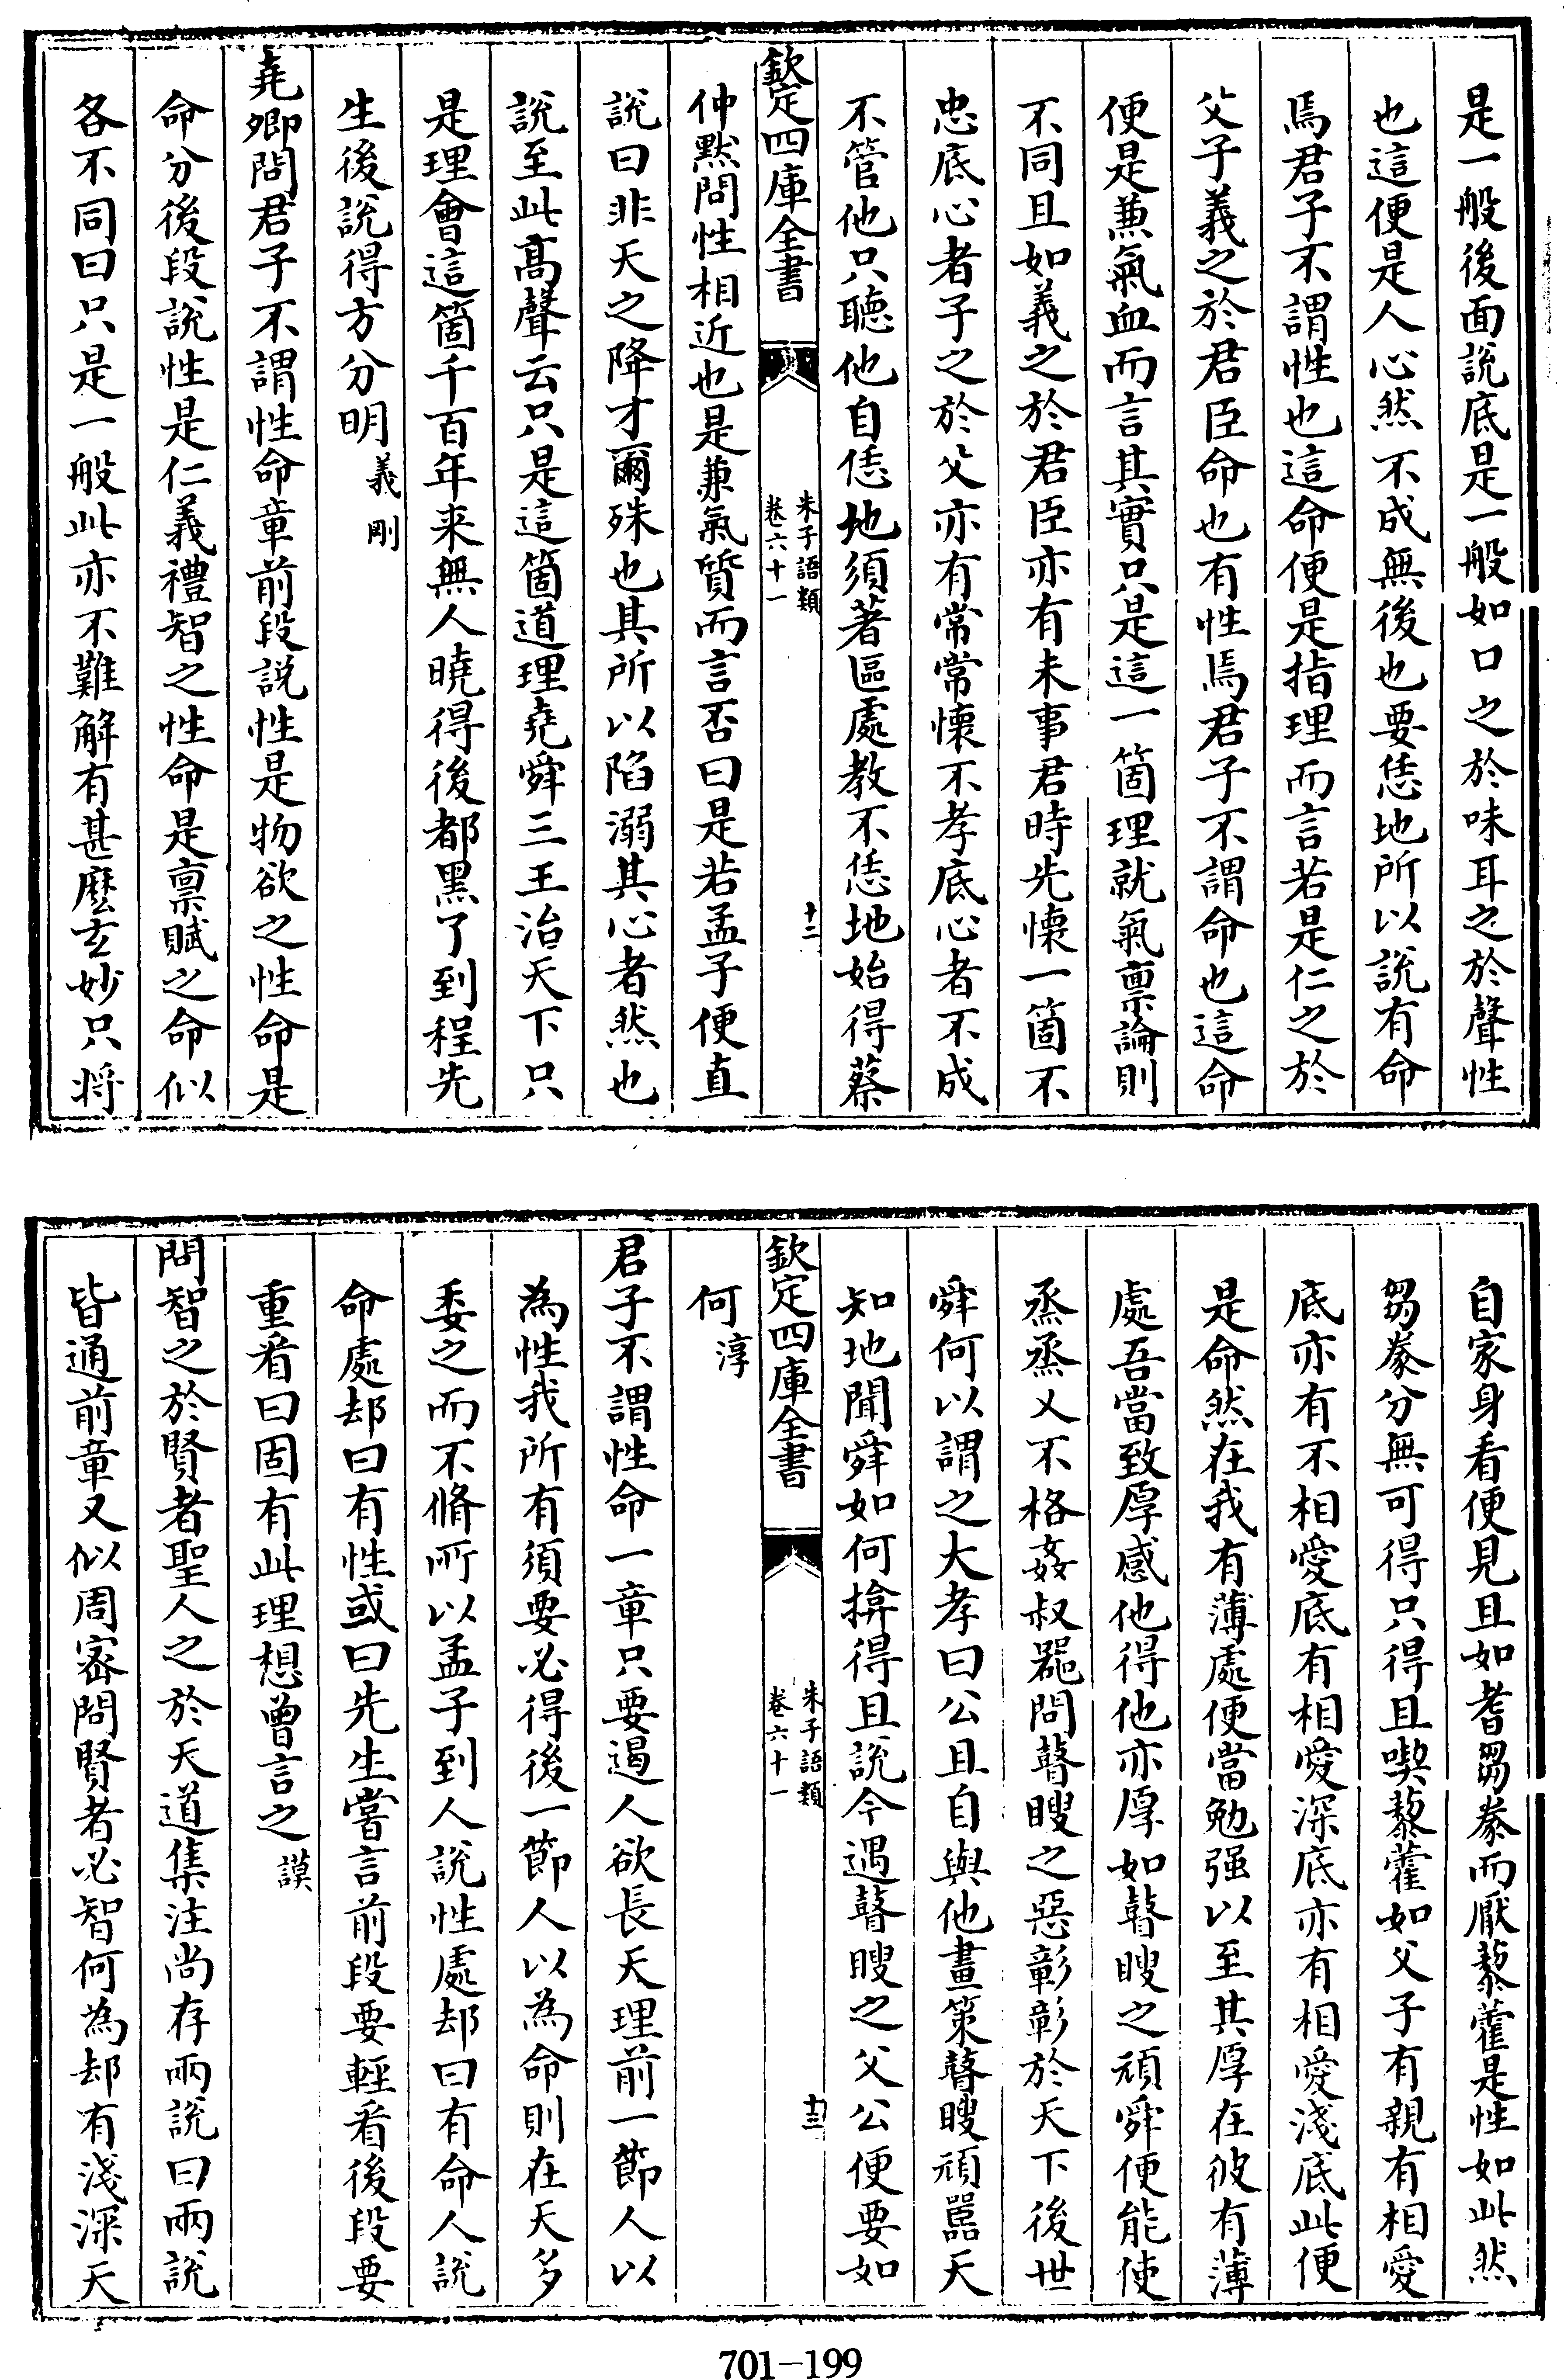 是一般後面說底是一般如口之於味耳之於聲性
也這便是人心然不成無後也要恁地所以說有命
焉君子不謂性也這命便是指理而言若是仁之於
父子義之於君臣命也有性焉君子不謂命也這命
便是兼氣血而言其實只是這一箇理就氣禀論則
不同且如義之於君臣亦有未事君時先懷一箇不
忠底心者子之於父亦有常常懷不孝底心者不成
不管他只聽他自恁地須著區處教不恁地始得蔡
欽定四庫全書
朱子語類
卷六十一
十二
仲默問性相近也是兼氣質而言否曰是若孟子便直
說曰非天之降才爾殊也其所以陷溺其心者然也
說至此高聲云只是這箇道理堯舜三王治天下只
是理會這箇千百年来無人曉得後都黑了到程先
生後說得方分明義剛
堯卿問君子不謂性命章前段說性是物欲之性命是
命分後段說性是仁義禮智之性命是禀賦之命似
各不同曰只是一般此亦不難解有甚麽玄妙只将
自家身看便見且如耆芻豢而厭藜藿是性如此然
芻豢分無可得只得且喫藜藿如父子有親有相愛
底亦有不相愛底有相愛深底亦有相愛淺底此便
是命然在我有薄處便當勉强以至其厚在彼有薄
處吾當致厚感他得他亦厚如瞽瞍之頑舜便能使
烝烝乂不格姦叔器問瞽瞍之惡彰彰於天下後世
舜何以謂之大孝曰公且自與他畫策瞽瞍頑嚚天
知地聞舜如何揜得且說今遇瞽瞍之父公便要如
欽定四庫全書
朱子語類
卷六十一
十三
何淳
君子不謂性命一章只要遏人欲長天理前一節人以
為性我所有須要必得後一節人以為命則在天多
委之而不脩所以孟子到人說性處却曰有命人說
命處却曰有性或曰先生嘗言前段要輕看後段要
重看曰固有此理想曾言之謨
問智之於賢者聖人之於天道集注尚存兩說曰兩說
皆通前章又似周密問賢者必智何為却有淺深天
701-199